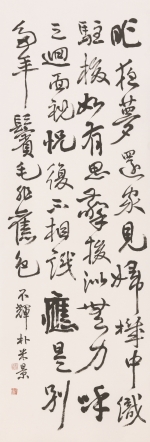 昨夜夢還家見婦機中織
駐梭如有思擎梭似無力呼
之廻面視怳復不相識應是別
多年鬢毛非舊色 不輝 朴米景